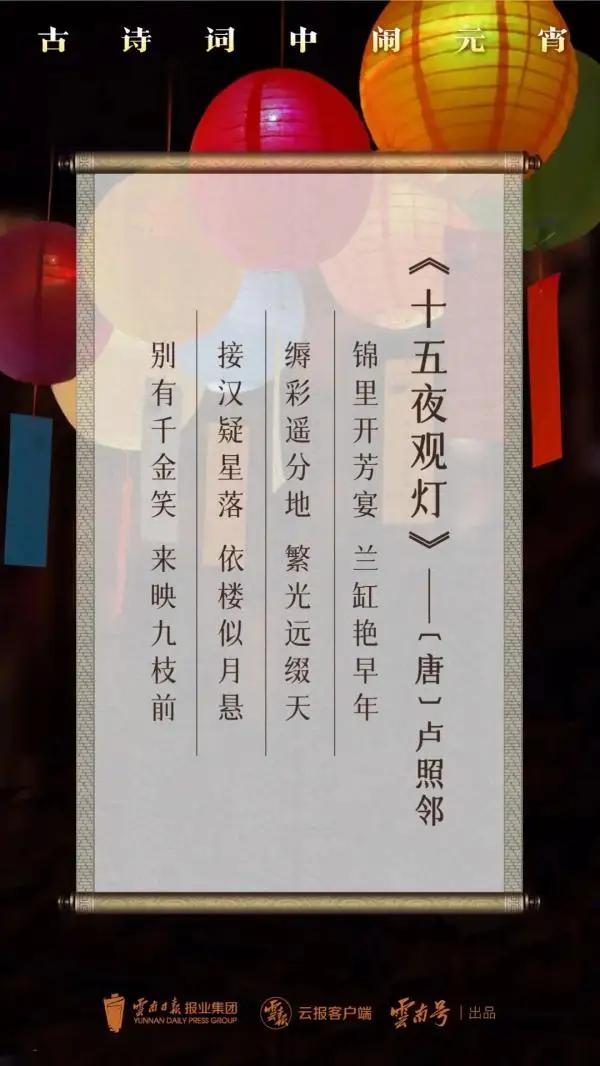 古诗词中闹元宵
《十五夜观灯》——〔唐〕卢照邻
锦里开芳宴 兰缸艳早年
缛彩遥分地 繁光远缀天
接汉疑星落 依楼似月悬
别有千金笑 来映九枝前
雲南日报 报业集团
YUNNAN DAILY PRESS GROUP
雲报 云报客户端
雲南号 | 出品